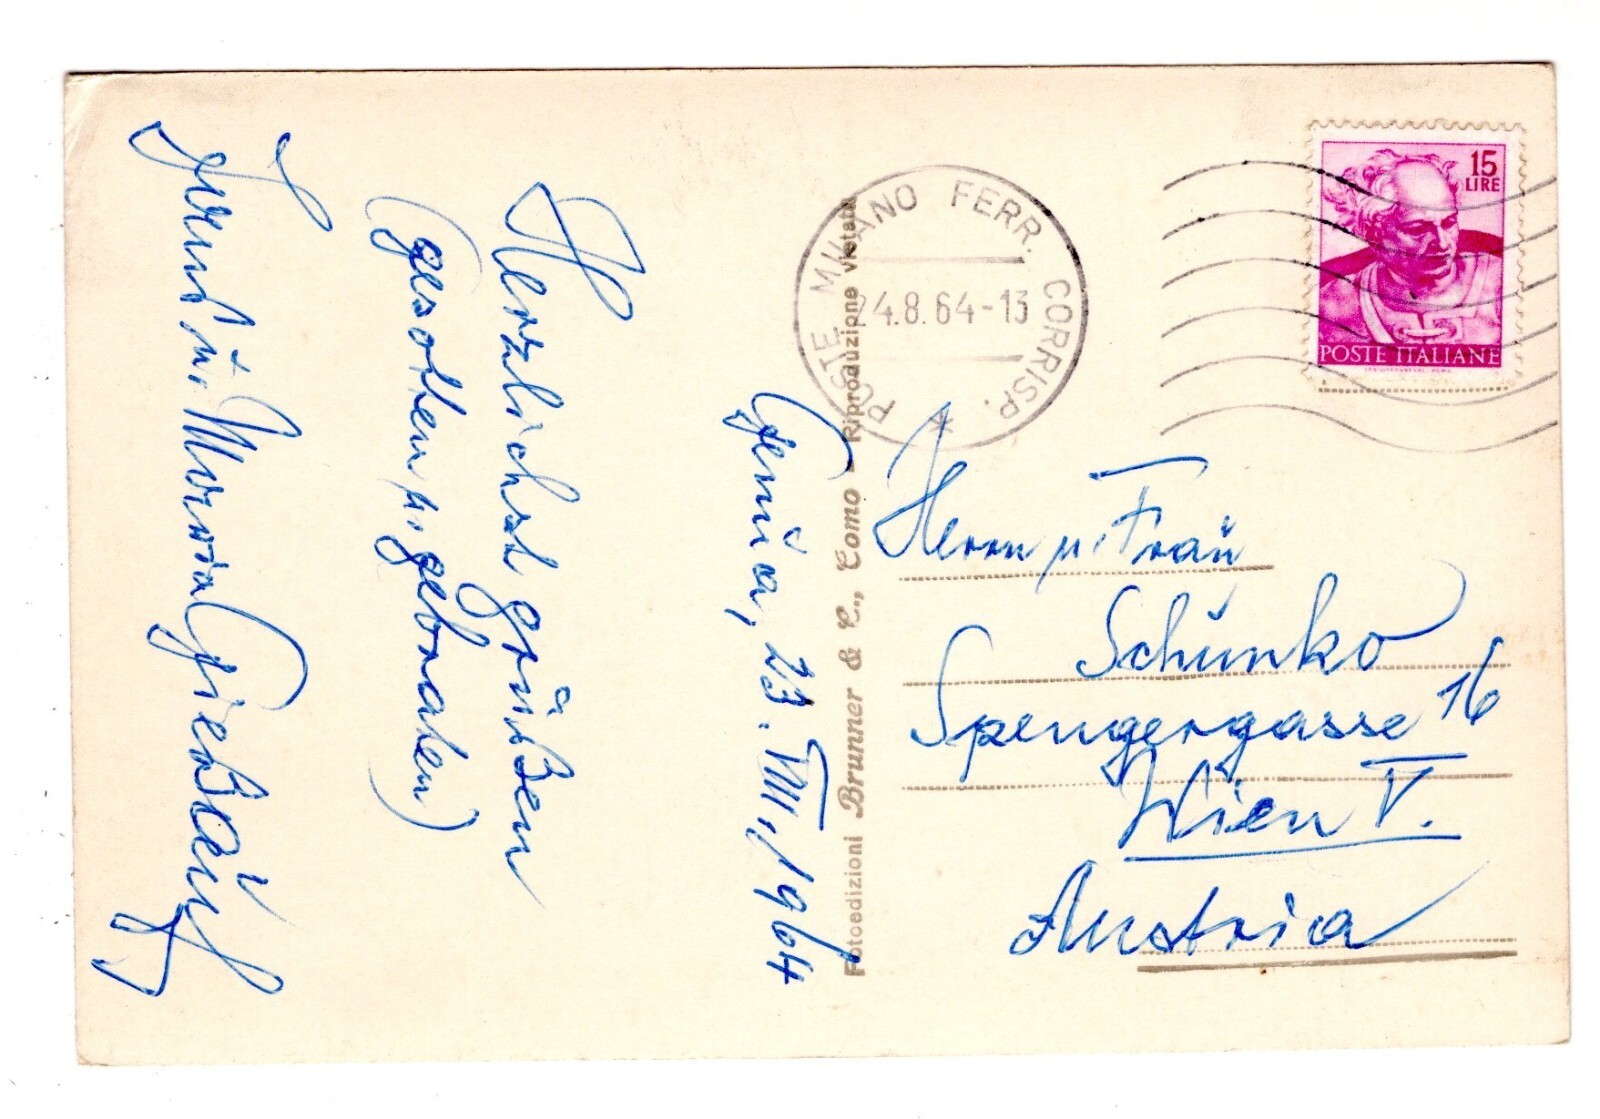 Genua, 23. VIII. 1964
Herzlichst grüßen
(gesotten u. gebraten)
u.
Fotoedizioni Brunner & C., Como - Riproduzione vietata
POSTE MILANO FERR. CORRISP.
24.8.64-13
15
LIRE
POSTE ITALIANE
Herrn u. Frau
Schunko
Spengergasse 16
Wien V.
Austria